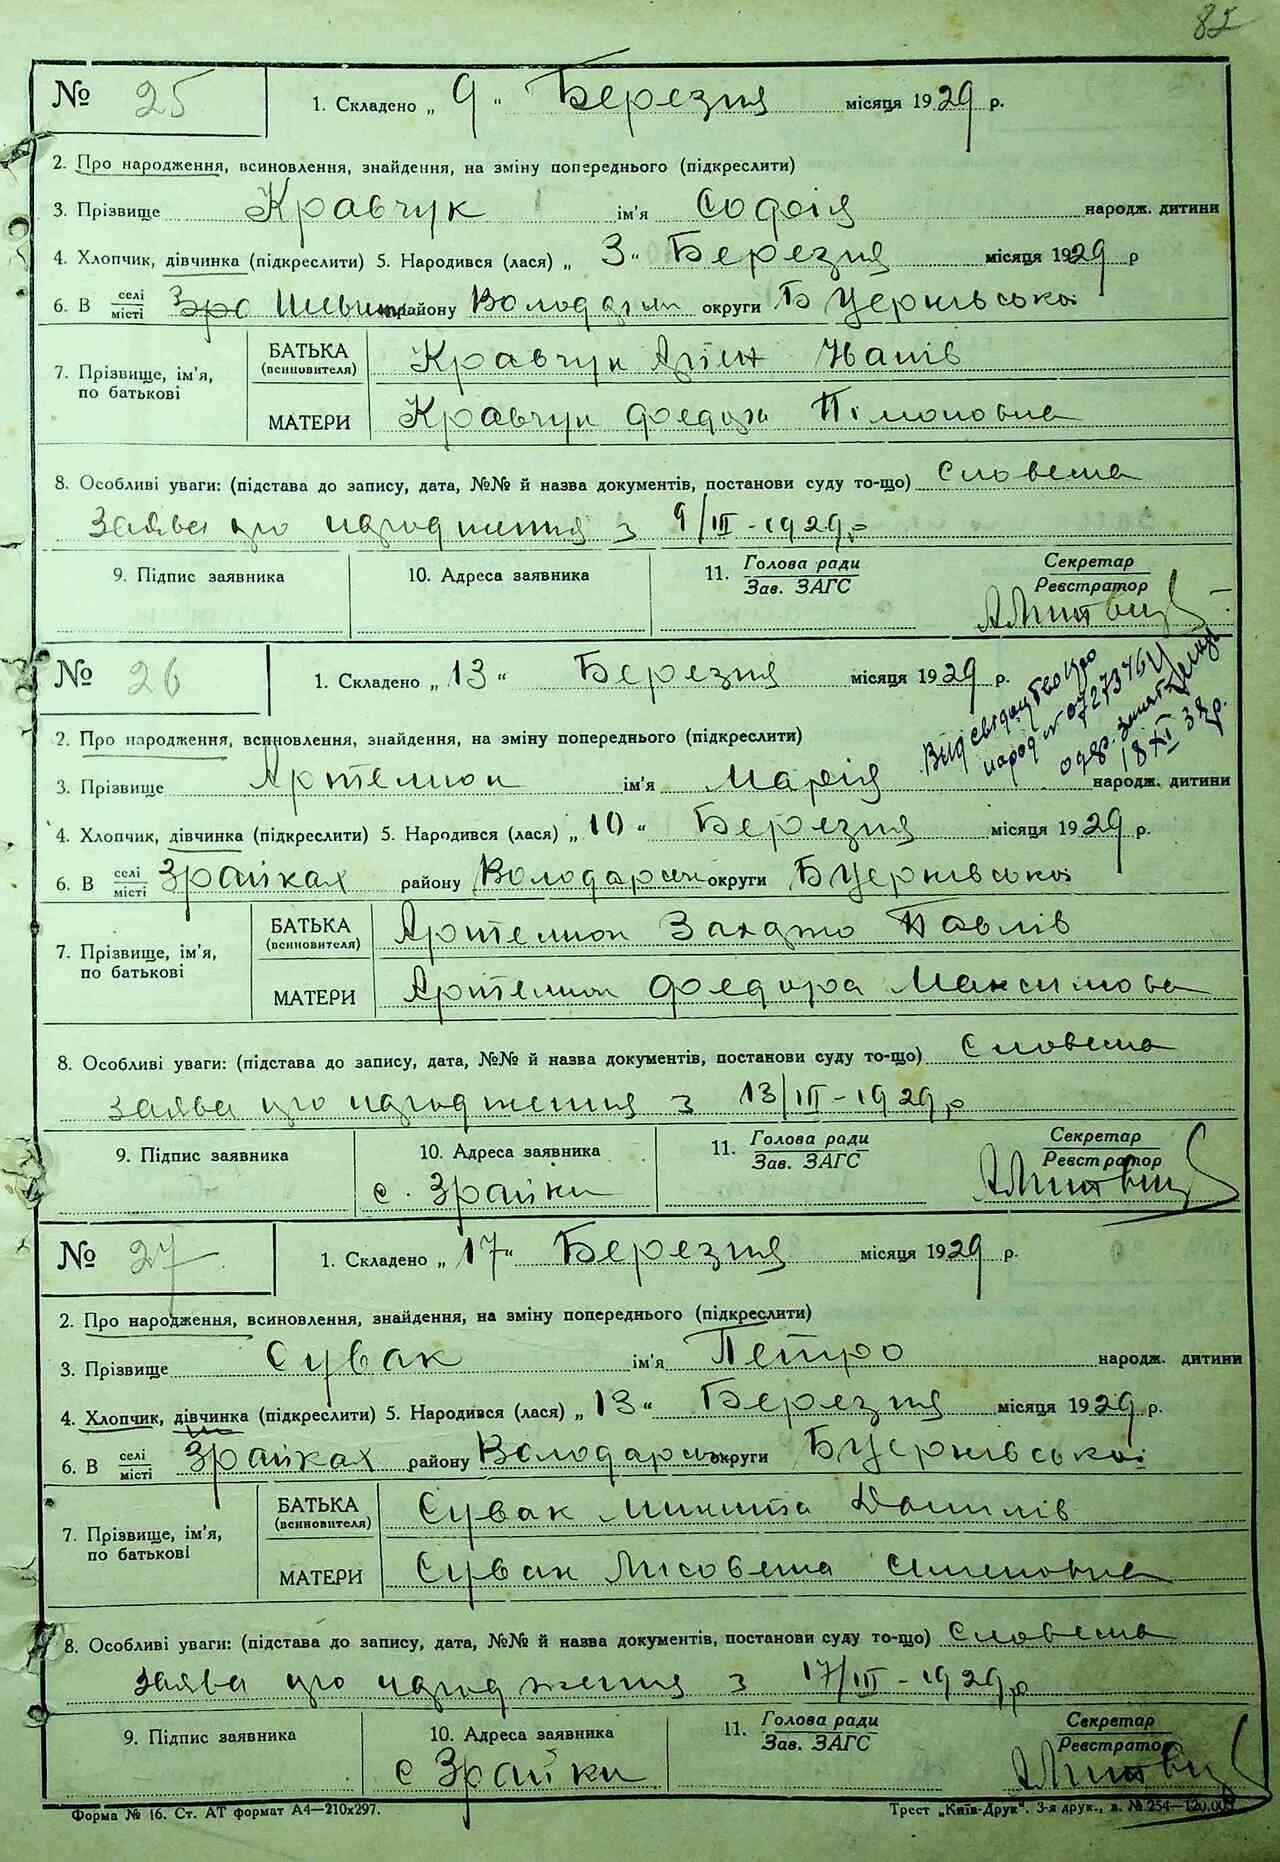 82
№ 25 1. Складено „ 9 " Березня місяця 1929 р.
2. Про народження, всиновлення, знайдення, на зміну попереднього (підкреслити)
3. Прізвище Кравчук ім'я Софія народж. дитини
4. Хлопчик, дівчинка (підкреслити) 5. Народився (лася) „ 3 " Березня місяця 1929 р
6. В селі/місті району Володарськ округи БЦерківської
7. Прізвище, ім'я, по батькові
БАТЬКА (всиновителя) Кравчук Іванів
МАТЕРИ Кравчук Федося
8. Особливі уваги: (підстава до запису, дата, №№ й назва документів, постанови суду то-що) Словесна
заява про народження з 9/III-1929 р
9. Підпис заявника 10. Адреса заявника 11. Голова ради Секретар
Зав. ЗАГС Реєстратор
№ 26 1. Складено „ 13 " Березня місяця 1929 р.
Вид. свідоцтво про
народ № 0727376
18 XI 38р.
2. Про народження, всиновлення, знайдення, на зміну попереднього (підкреслити)
3. Прізвище Артемюк ім'я Марія народж. дитини
4. Хлопчик, дівчинка (підкреслити) 5. Народився (лася) „ 10 " Березня місяця 1929 р.
6. В селі/місті Зрайках району Володарськ округи БЦерківської
7. Прізвище, ім'я, по батькові
БАТЬКА (всиновителя) Артемюк Павлів
МАТЕРИ Артемюк Федора Максимова
8. Особливі уваги: (підстава до запису, дата, №№ й назва документів, постанови суду то-що) Словесна
заява про народження з 13/III-1929 р
9. Підпис заявника 10. Адреса заявника 11. Голова ради Секретар
Зав. ЗАГС Реєстратор
с. Зрайки
№ 27 1. Складено „ 17 " Березня місяця 1929 р.
2. Про народження, всиновлення, знайдення, на зміну попереднього (підкреслити)
3. Прізвище Сувак ім'я Петро народж. дитини
4. Хлопчик, дівчинка (підкреслити) 5. Народився (лася) „ 13 " Березня місяця 1929 р.
6. В селі/місті Зрайках району Володарськ округи БЦерківської
7. Прізвище, ім'я, по батькові
БАТЬКА (всиновителя) Сувак Микита Данилів
МАТЕРИ Сувак Лисовета
8. Особливі уваги: (підстава до запису, дата, №№ й назва документів, постанови суду то-що) Словесна
заява про народження з 17/III-1929 р
9. Підпис заявника 10. Адреса заявника 11. Голова ради Секретар
Зав. ЗАГС Реєстратор
с Зрайки
Форма № 16. Ст. АТ формат А4—210х297. Трест „Київ-Друк". 3-я друк., з. № 254—120.000.